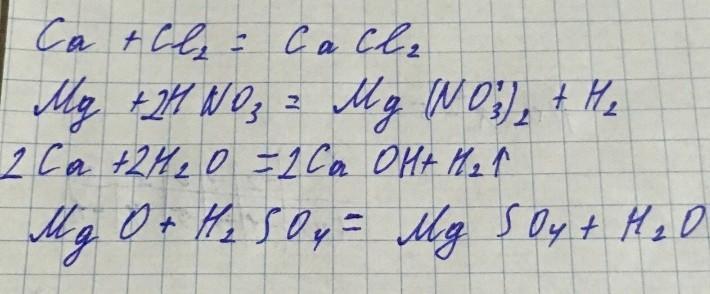 Ca + Cl₂ = CaCl₂
Mg + 2HNO₃ = Mg(NO₃)₂ + H₂
2Ca + 2H₂O = 2CaOH + H₂↑
MgO + H₂SO₄ = MgSO₄ + H₂O